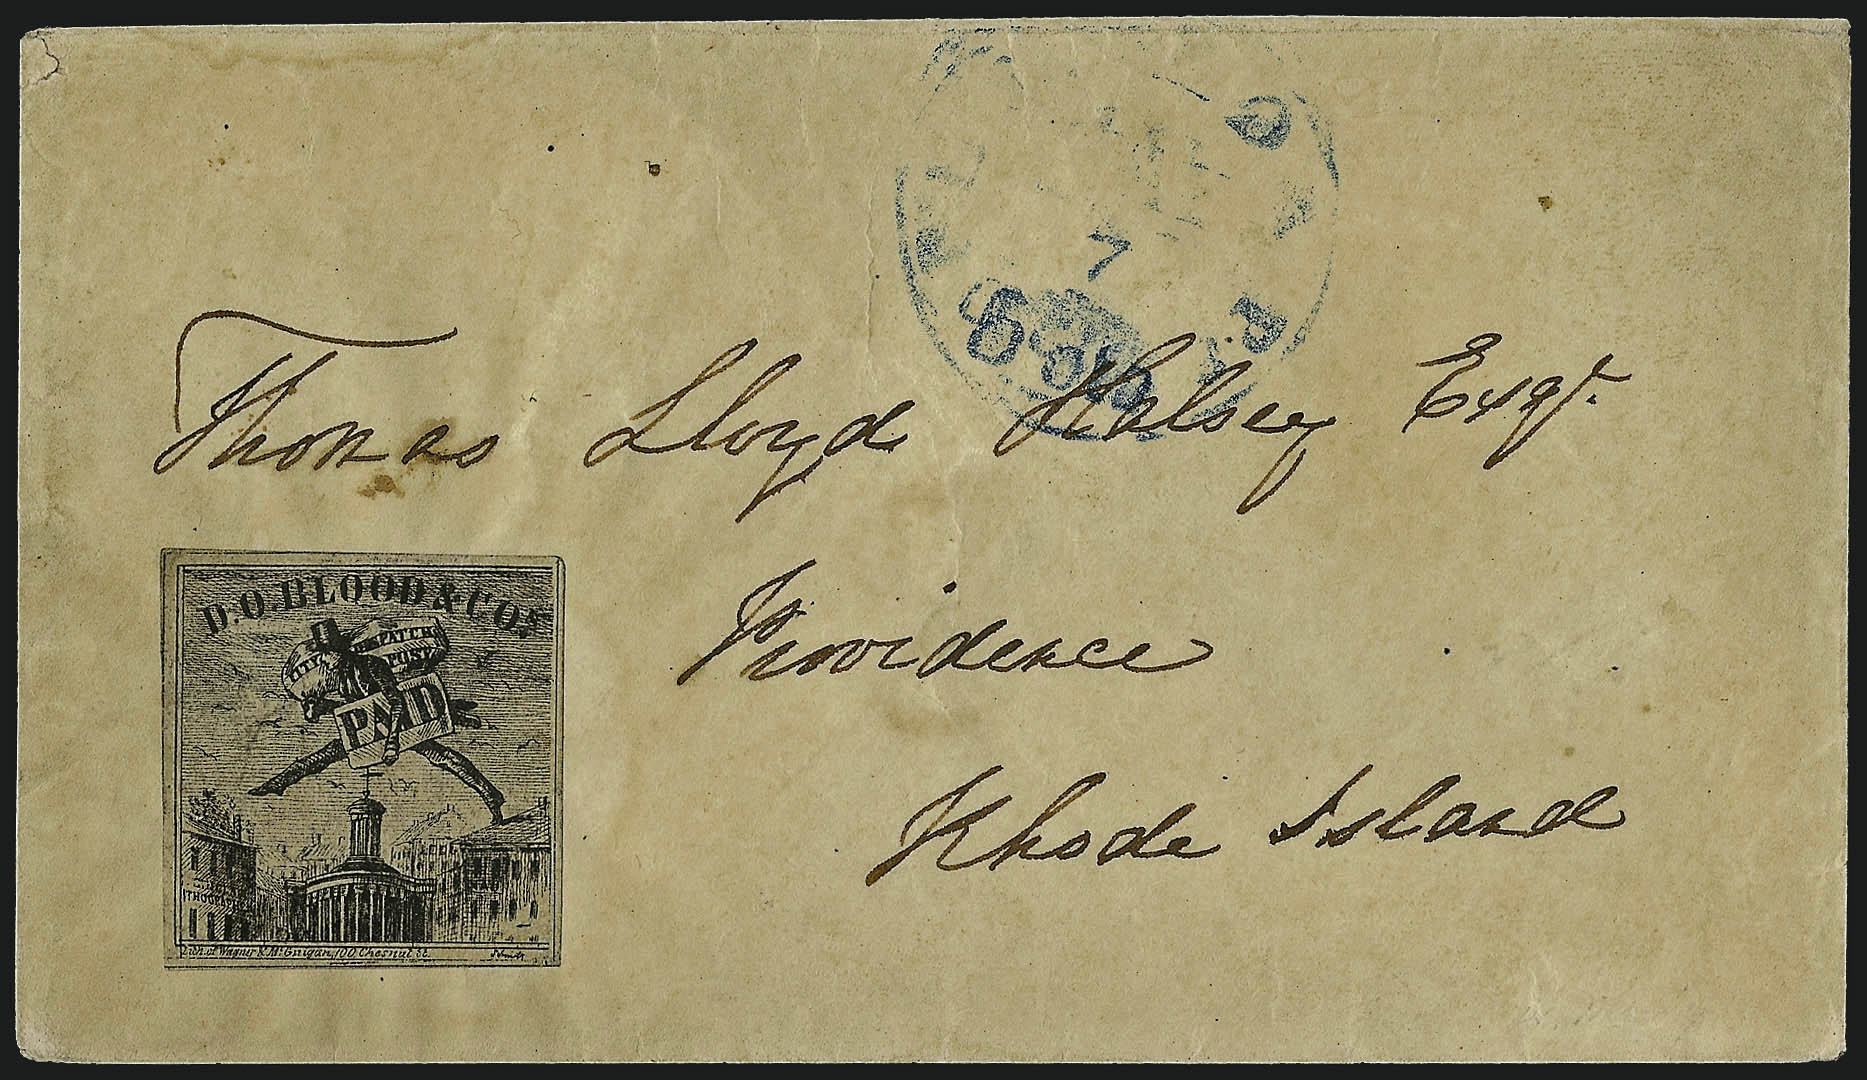 7
Thomas Lloyd Halsey Esqr.
Providence
Rhode Island
D.O.BLOOD & CO'S
CITY DESPATCH
POST
PAID
Lith. of Wagner & McGuigan, 100 Chesnut St.